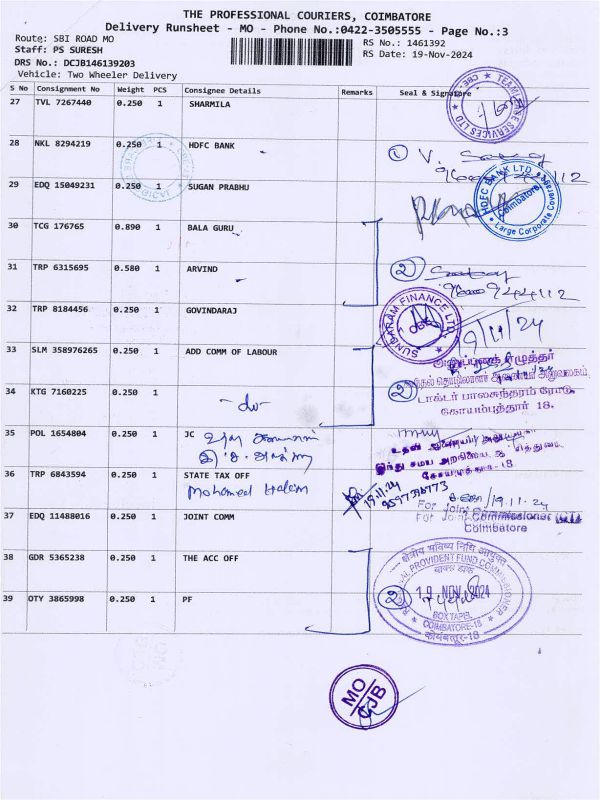 THE PROFESSIONAL COURIERS, COIMBATORE
Delivery Runsheet - MO - Phone No.:0422-3505555 - Page No.:3
Route: SBI ROAD MO
RS No.: 1461392
Staff: PS SURESH
RS Date: 19-Nov-2024
DRS No.: DCJB146139203
Vehicle: Two Wheeler Delivery
S No Consignment No Weight PCS Consignee Details Remarks Seal & Signature
27 TVL 7267440 0.250 1 SHARMILA
28 NKL 8294219 0.250 1 HDFC BANK
HDFC BANK LTD
Coimbatore
Large Corporate Coverage
29 EDQ 15049231 0.250 1 SUGAN PRABHU
30 TCG 176765 0.890 1 BALA GURU
31 TRP 6315695 0.580 1 ARVIND
2
32 TRP 8184456 0.250 1 GOVINDARAJ
SUNDARAM FINANCE LTD
19/11/24
33 SLM 358976265 0.250 1 ADD COMM OF LABOUR
டாக்டர் பாலசுந்தரம் ரோடு,
கோயம்புத்தூர் 18.
34 KTG 7160225 0.250 1
-do-
2
35 POL 1654804 0.250 1 JC
36 TRP 6843594 0.250 1 STATE TAX OFF
Mohamed Haleem
19.11.24
19.11.24
37 EDQ 11488016 0.250 1 JOINT COMM
Coimbatore
38 GDR 5365238 0.250 1 THE ACC OFF
क्षेत्रीय भविष्य निधि आयुक्त
PROVIDENT FUND COMMISSIONER
19 NOV 2024
COIMBATORE-18
कोयंबतूर-18
39 OTY 3865998 0.250 1 PF
2
MO
CJB